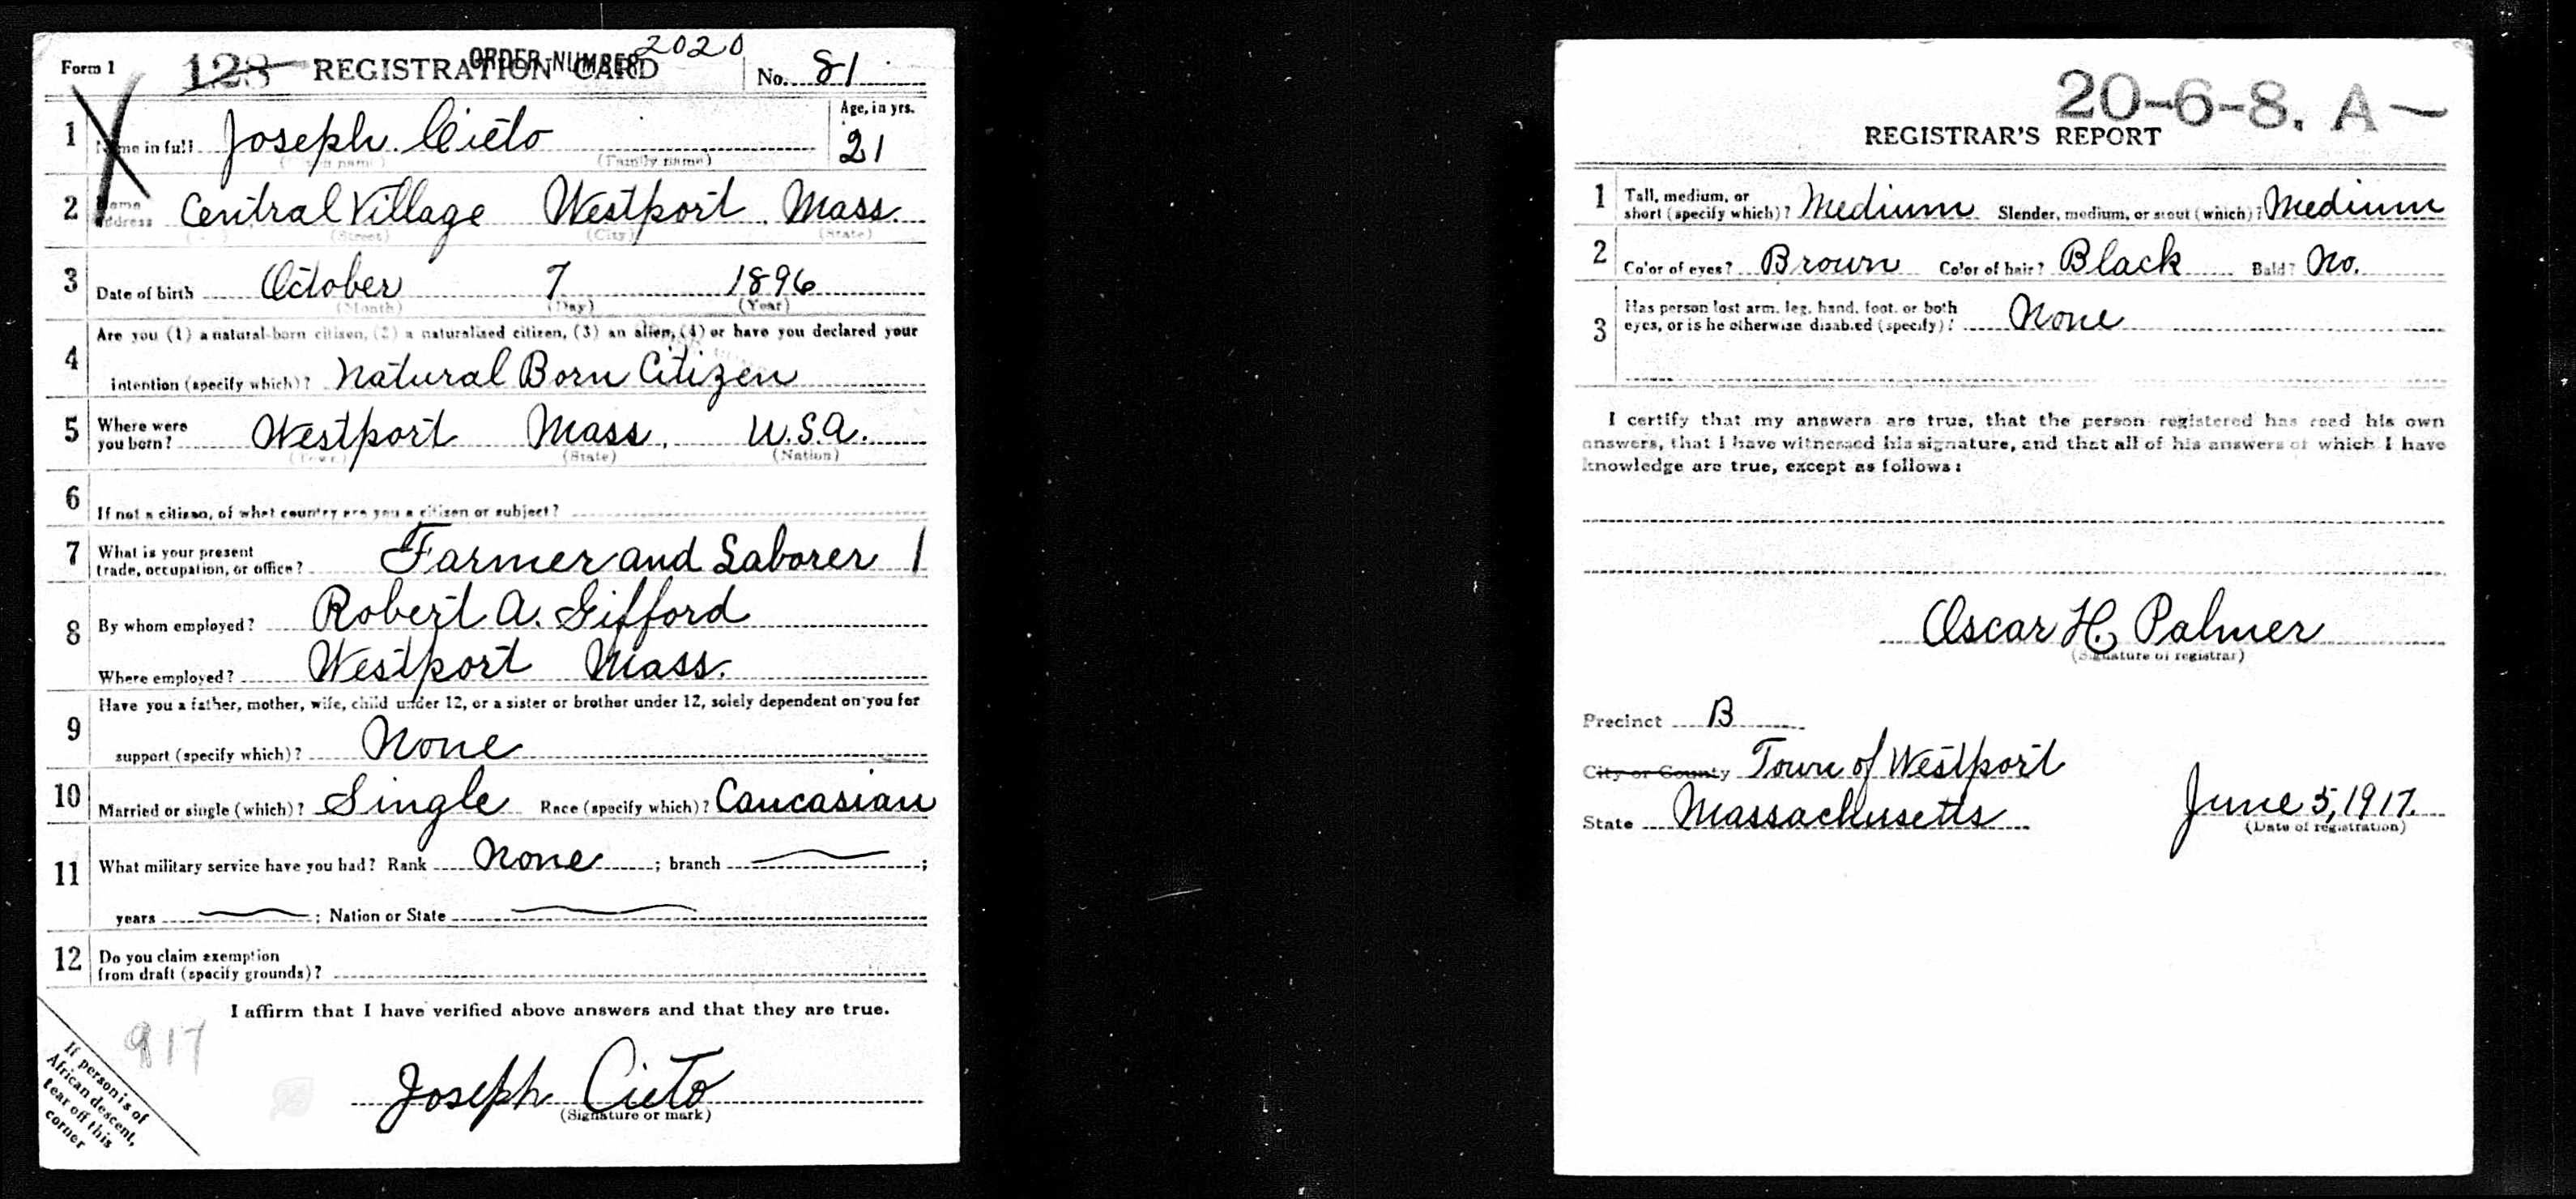 Form 1 128 REGISTRATION CARD ORDER NUMBER 2020 No. 81
1 Name in full Joseph Cieto Age, in yrs. 21
(Given name) (Family name)
2 Home address Central Village Westport, Mass.
(Street) (City) (State)
3 Date of birth October 7 1896
(Month) (Day) (Year)
4 Are you (1) a natural-born citizen, (2) a naturalized citizen, (3) an alien, (4) or have you declared your
intention (specify which)? Natural Born Citizen
5 Where were you born? Westport Mass. U.S.A.
(Town) (State) (Nation)
6 If not a citizen, of what country are you a citizen or subject?
7 What is your present
trade, occupation, or office? Farmer and Laborer 1
8 By whom employed? Robert A. Gifford
Where employed? Westport Mass.
9 Have you a father, mother, wife, child under 12, or a sister or brother under 12, solely dependent on you for
support (specify which)? None
10 Married or single (which)? Single Race (specify which)? Caucasian
11 What military service have you had? Rank None ; branch ;
years ; Nation or State
12 Do you claim exemption
from draft (specify grounds)?
I affirm that I have verified above answers and that they are true.
917
Joseph Cieto
(Signature or mark)
If person is of
African descent,
tear off this
corner
20-6-8. A
REGISTRAR'S REPORT
1 Tall, medium, or
short (specify which)? Medium Slender, medium, or stout (which)? Medium
2 Color of eyes? Brown Color of hair? Black Bald? No.
3 Has person lost arm, leg, hand, foot, or both
eyes, or is he otherwise disabled (specify)? None
I certify that my answers are true, that the person registered has read his own
answers, that I have witnessed his signature, and that all of his answers of which I have
knowledge are true, except as follows:
Oscar H. Palmer
(Signature of registrar)
Precinct B
City or County Town of Westport
State Massachusetts June 5, 1917.
(Date of registration)